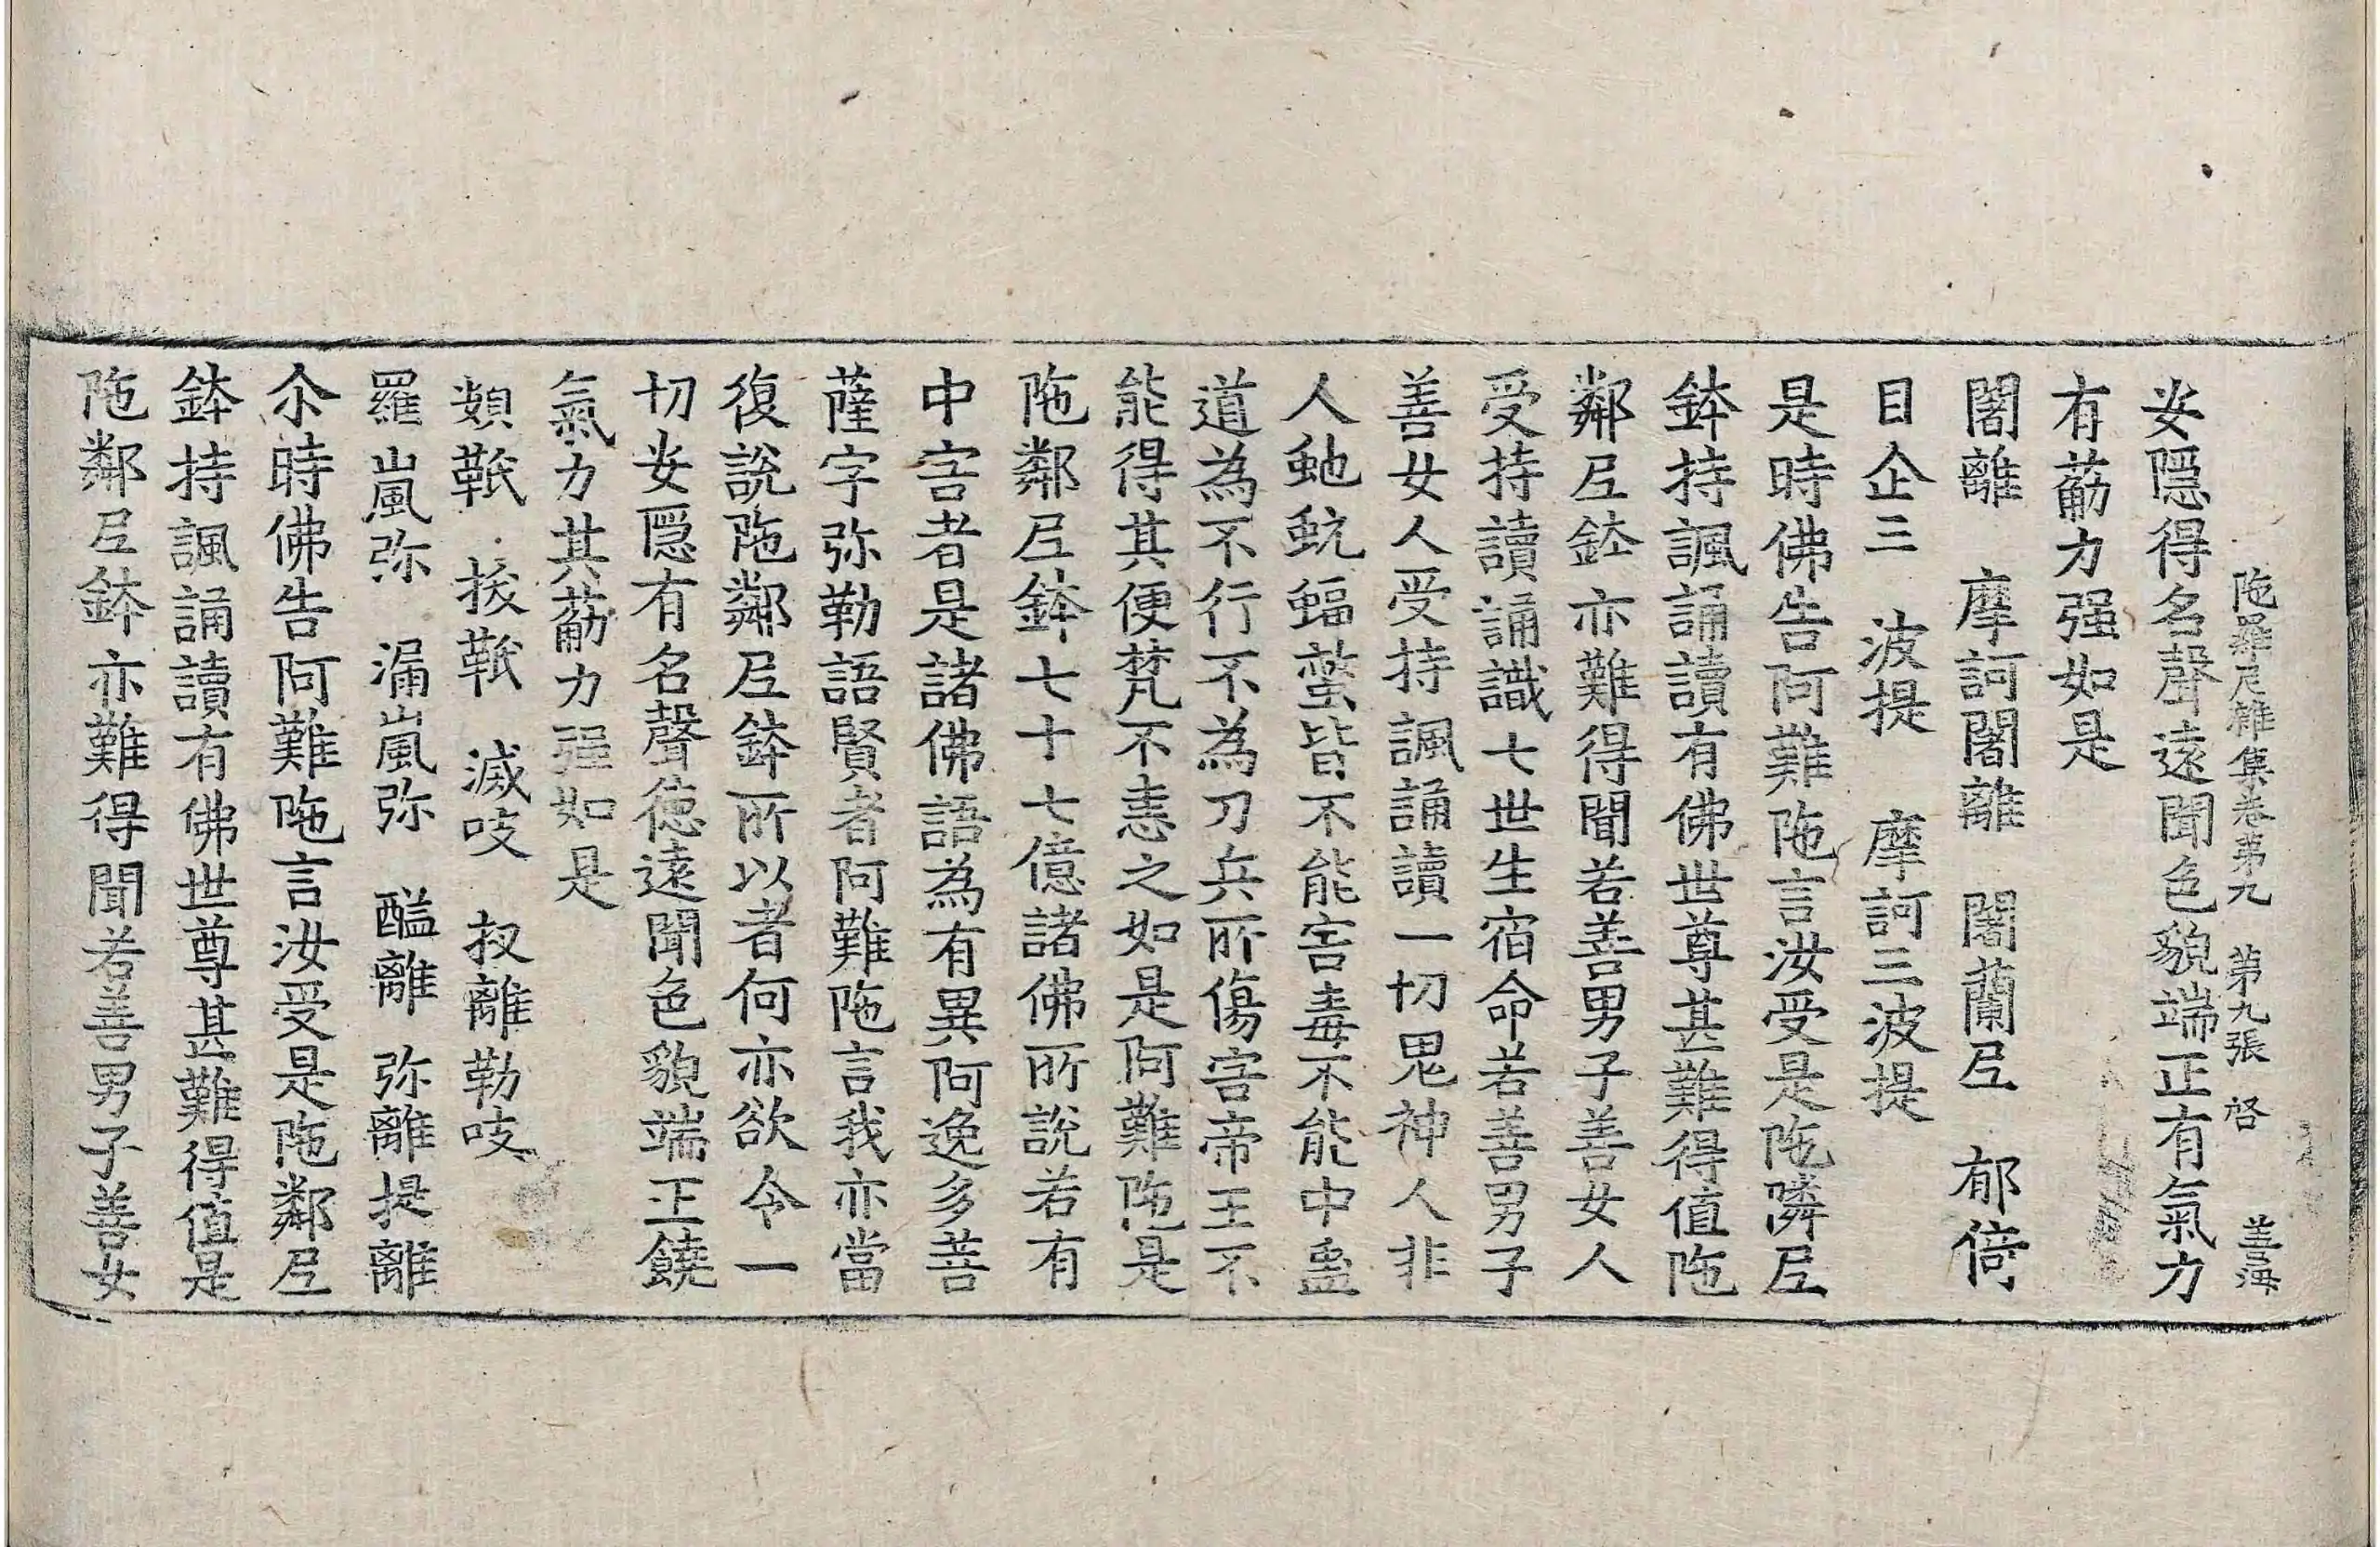 陁羅尼雜集卷第九　第九張　啓　善海
安隱得名聲遠聞色貌端正有氣力
有葋力强如是
闍離　摩訶闍離　闍蘭𡰱　郁倚
目企三　波提　摩訶三波提
是時佛告阿難陁言汝受是陁隣𡰱
鉢持諷誦讀有佛世尊甚難得值陁
鄰𡰱鉢亦難得聞若善男子善女人
受持讀誦識七世生宿命若善男子
善女人受持諷誦讀一切鬼神人非
人虵蚖蝠蜇皆不能害毒不能中蛊
道為不行不為刀兵所傷害帝王不
能得其便梵不恚之如是阿難陁是
陁鄰𡰱鉢七十七億諸佛所說若有
中害者是諸佛語為有異阿逸多菩
薩字弥勒語賢者阿難陁言我亦當
復說陁鄰𡰱鉢所以者何亦欲令一
切安隱有名聲德遠聞色貌端正饒
氣力其葋力强如是
頞䩭　㧞䩭　滅吱　杈離勒吱
羅嵐弥　漏嵐弥　醯離　弥離提離
尒時佛告阿難陁言汝受是陁鄰𡰱
鉢持諷誦讀有佛世尊甚難得值是
陁鄰𡰱鉢亦難得聞若善男子善女